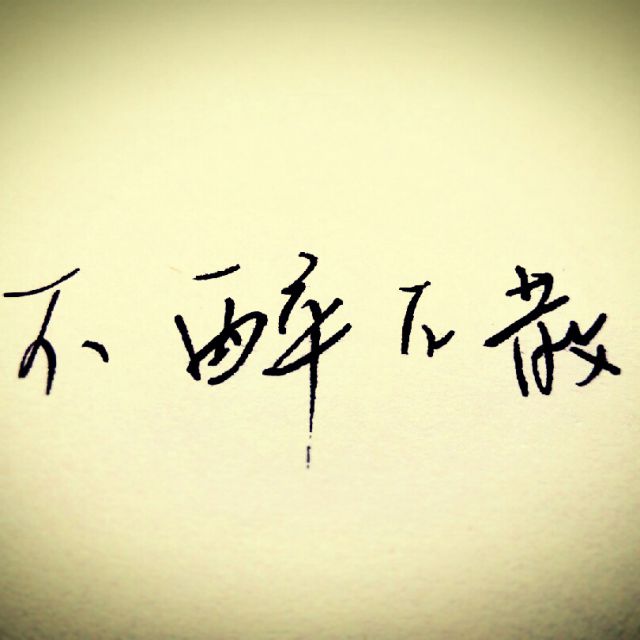 不醉不散